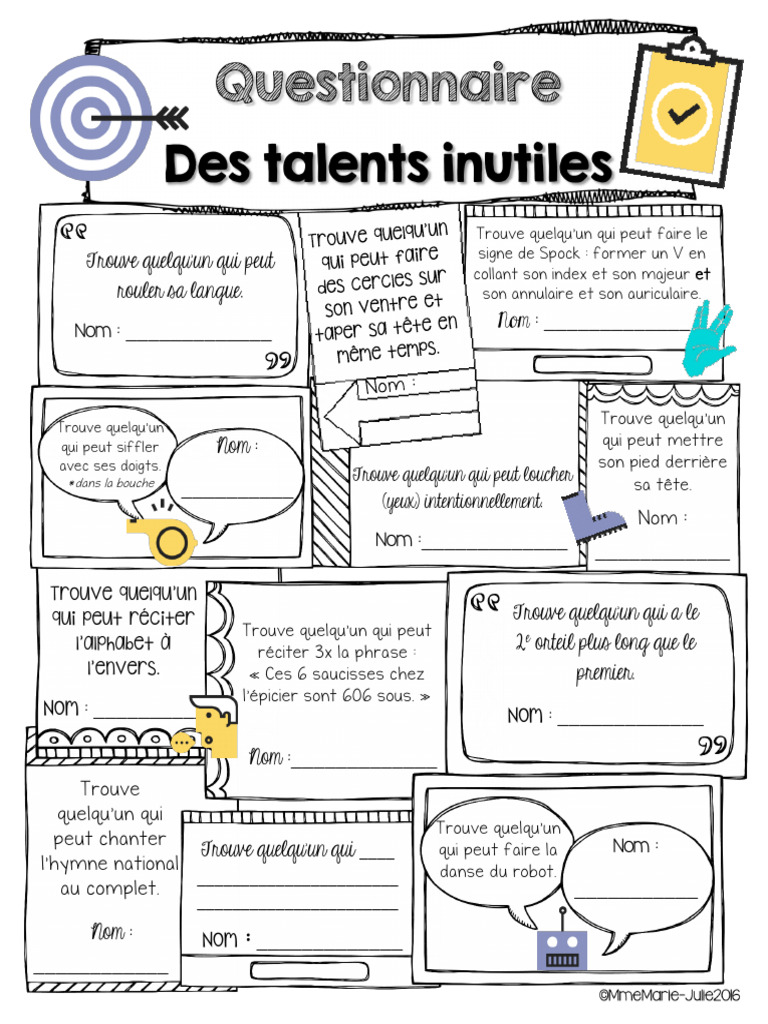 Questionnaire
Des talents inutiles
Trouve quelqu'un qui peut
rouler sa langue.
Nom : _______________
Trouve quelqu'un
qui peut faire
des cercles sur
son ventre et
taper sa tête en
même temps.
Nom :
Trouve quelqu'un qui peut faire le
signe de Spock : former un V en
collant son index et son majeur et
son annulaire et son auriculaire.
Nom : _______________
Trouve quelqu'un
qui peut siffler
avec ses doigts.
*dans la bouche
Nom :
_______________
Trouve quelqu'un qui peut loucher
(yeux) intentionnellement.
Nom : _______________
Trouve quelqu'un
qui peut mettre
son pied derrière
sa tête.
Nom :
_______________
Trouve quelqu'un
qui peut réciter
l'alphabet à
l'envers.
Nom : _______________
Trouve quelqu'un qui peut
réciter 3x la phrase :
« Ces 6 saucisses chez
l'épicier sont 606 sous. »
Nom : _______________
Trouve quelqu'un qui a le
2e orteil plus long que le
premier.
Nom : _______________
Trouve
quelqu'un qui
peut chanter
l'hymne national
au complet.
Nom :
_______________
Trouve quelqu'un qui ____
_______________
_______________
Nom : _______________
Trouve quelqu'un
qui peut faire la
danse du robot.
Nom :
_______________
©MmeMarie-Julie2016